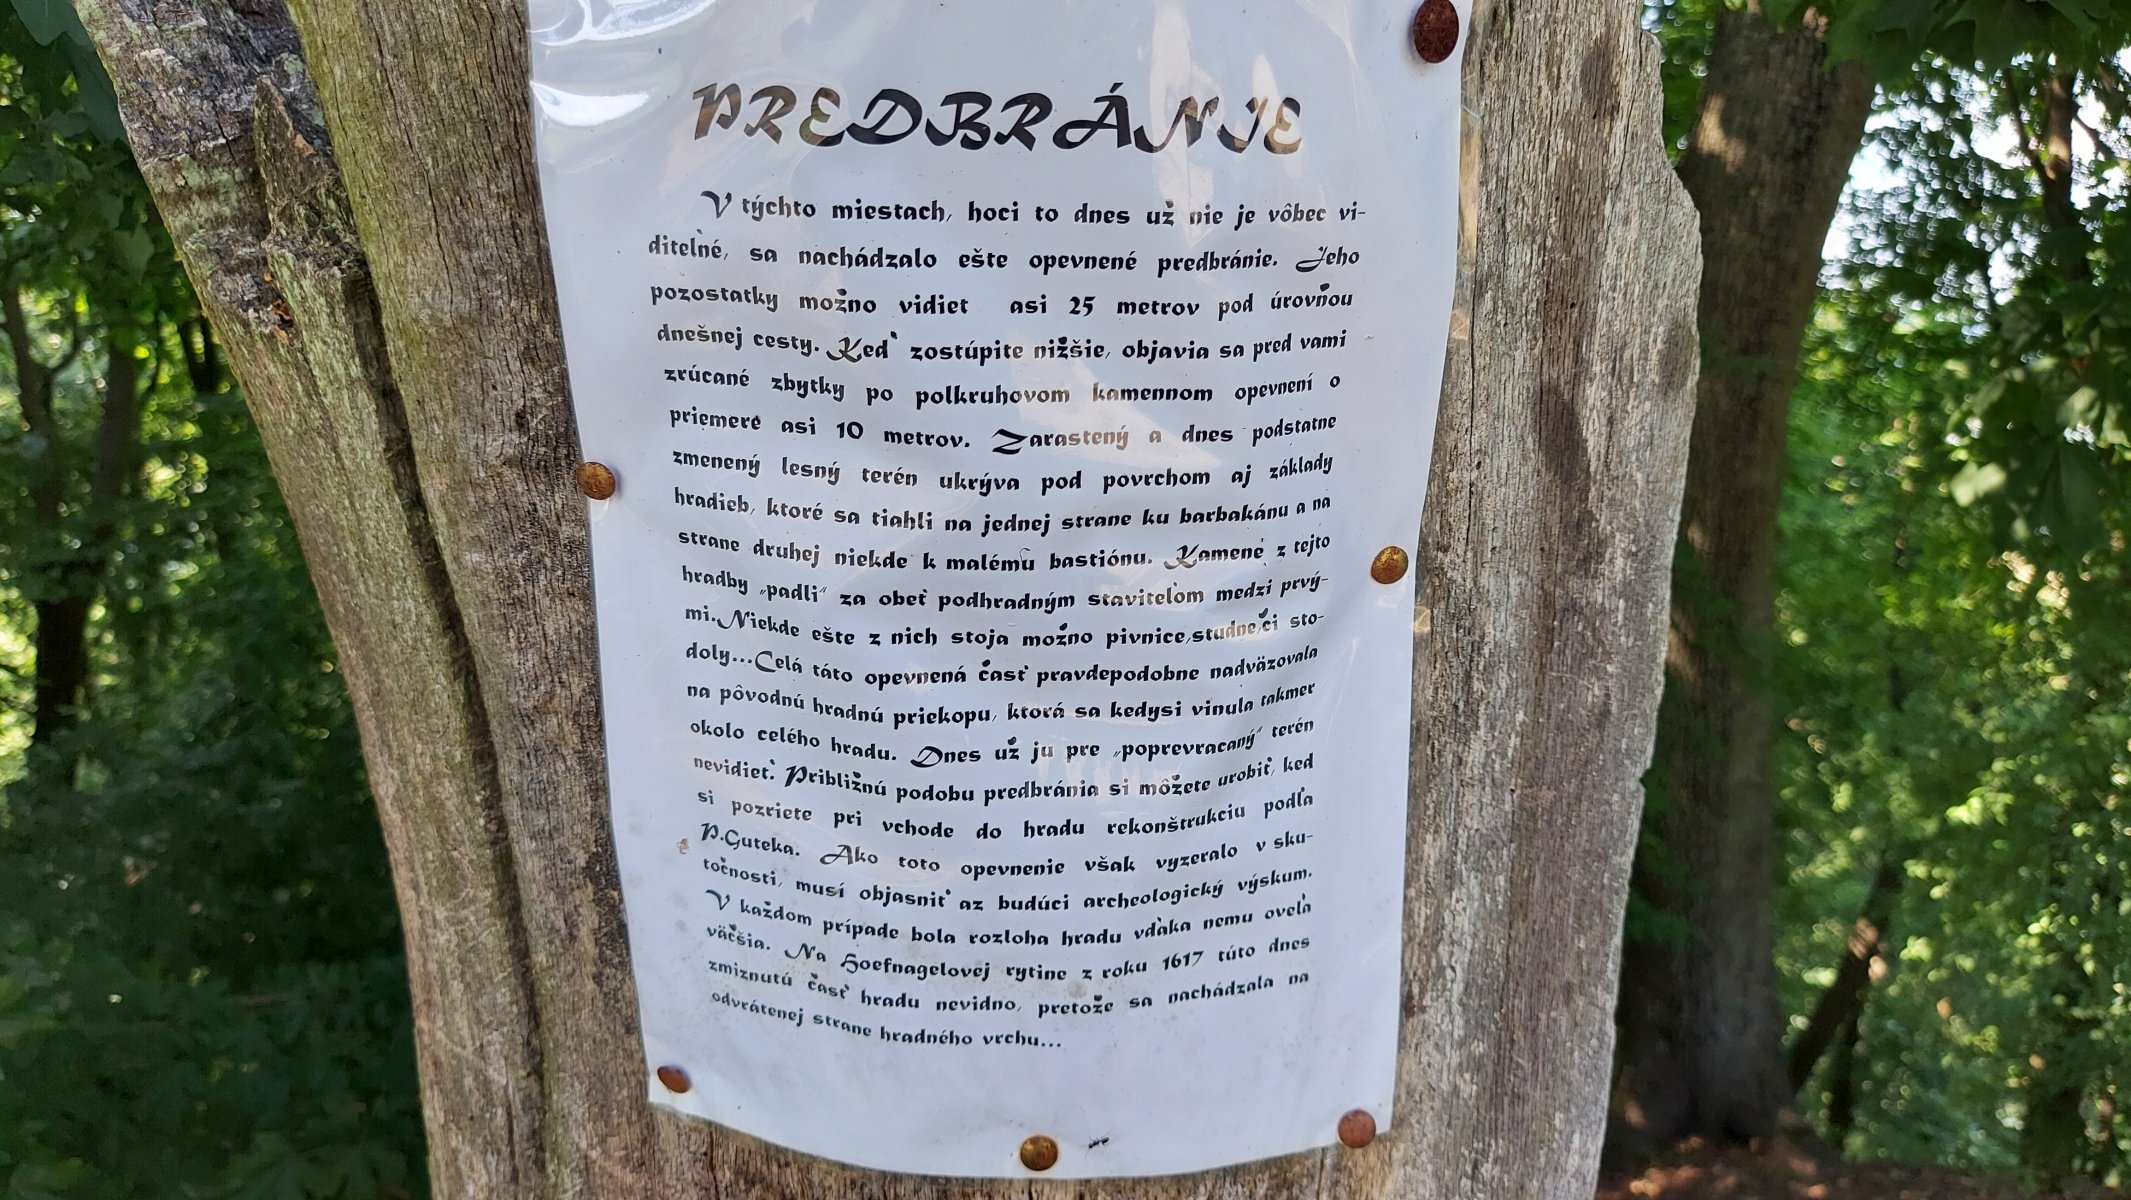 PREDBRÁNIE
V týchto miestach, hoci to dnes už nie je vôbec vi-
diteľné, sa nachádzalo ešte opevnené predbránie. Jeho
pozostatky možno vidieť asi 25 metrov pod úrovňou
dnešnej cesty. Keď zostúpite nižšie, objavia sa pred vami
zrúcané zbytky po polkruhovom kamennom opevnení o
priemere asi 10 metrov. Zarastený a dnes podstatne
zmenený lesný terén ukrýva pod povrchom aj základy
hradieb, ktoré sa tiahli na jednej strane ku barbakánu a na
strane druhej niekde k malému bastiónu. Kamene z tejto
hradby „padli“ za obeť podhradným staviteľom medzi prvý-
mi. Niekde ešte z nich stoja možno pivnice, studne, či sto-
doly...Celá táto opevnená časť pravdepodobne nadväzovala
na pôvodnú hradnú priekopu, ktorá sa kedysi vinula takmer
okolo celého hradu. Dnes už ju pre „poprevracaný“ terén
nevidieť. Približnú podobu predbránia si môžete urobiť, keď
si pozriete pri vchode do hradu rekonštrukciu podľa
P.Guteka. Ako toto opevnenie však vyzeralo v sku-
točnosti, musí objasniť az budúci archeologický výskum.
V každom prípade bola rozloha hradu vďaka nemu oveľa
väčšia. Na Hoefnagelovej rytine z roku 1617 túto dnes
zmiznutú časť hradu nevidno, pretože sa nachádzala na
odvrátenej strane hradného vrchu...